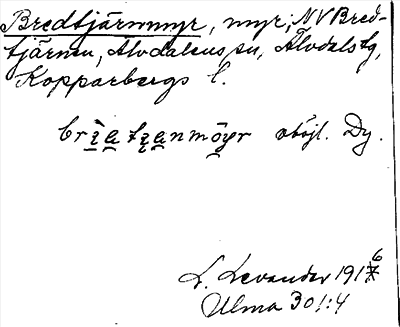 Bredtjärnmyr, myr; NV Bred-
tjärnen, Älvdalens sn, Älvdals tg,
Kopparbergs l.
oböjl. Dy.
L. Levander 1916
Ulma 301:4